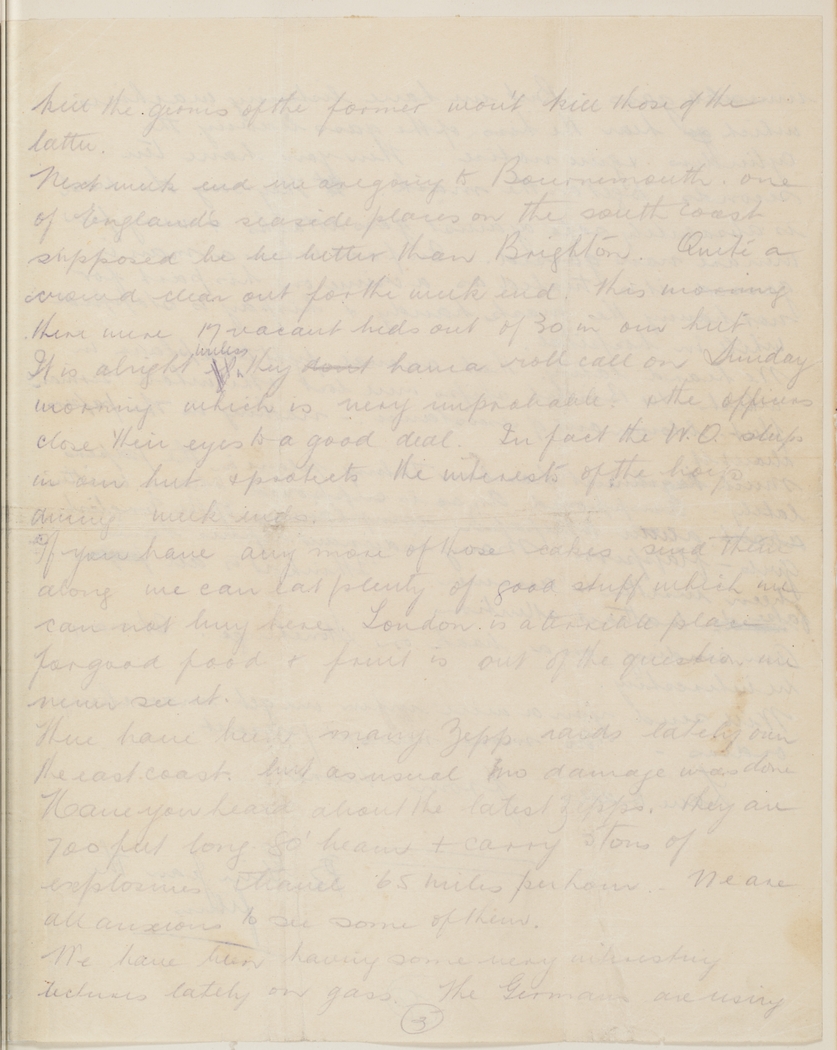 but the germs of the former won't kill those of the
latter.
Next week end we are going to Bournemouth. one
of England's seaside places on the south coast
supposed be be better than Brighton. Quite a
crowd clear out for the week end. This morning
there were 17 vacant beds out of 30 in our hut
It is alright unless they dont have a roll call on Sunday
morning which is very unprobable. & the officers
close their eyes to a good deal. In fact the W.O. sleeps
in our hut & protects the interests of the boys
during week ends.
If you have any more of those cakes send them
along we can eat plenty of good stuff which we
can not buy here. London is a terrible place
for good food & fruit is out of the question we
never see it.
There have been many Zepp raids lately over
the east coast. but as usual no damage was done
Have you heard about the latest Zepps. they are
700 feet long 80' beam & carry 5 tons of
explosives & travel 65 miles per hour. - We are
all anxious to see some of them.
We have been having some very interesting
lectures lately on gass. The Germans are using
3